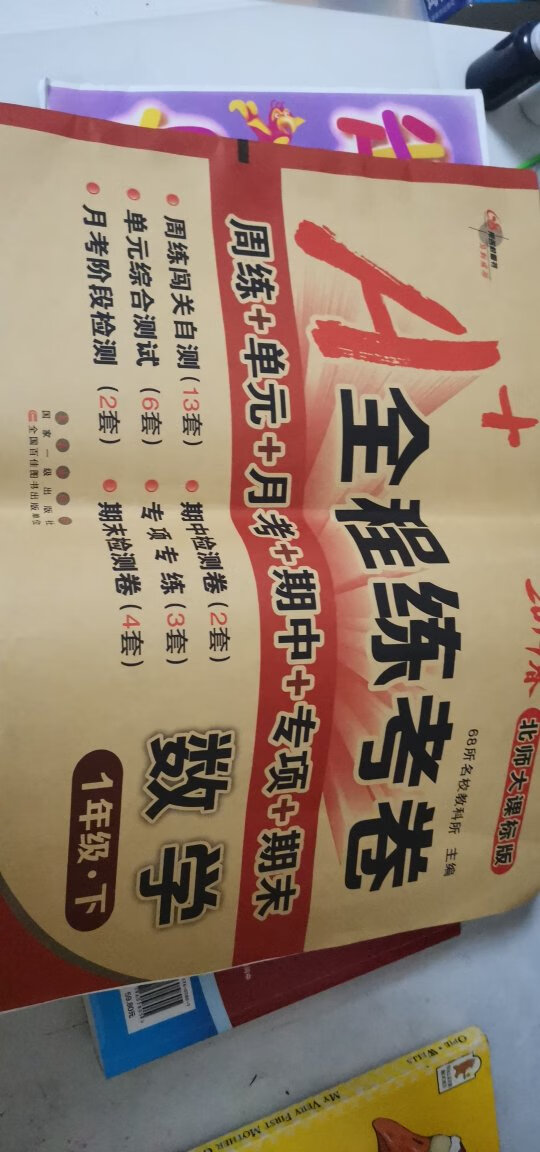 A+
全程练考卷
北师大课标版
68所名校教科所 主编
周练+单元+月考+期中+专项+期末
周练闯关自测(13套)
单元综合测试(6套)
月考阶段检测(2套)
期中检测卷(2套)
专项专练(3套)
期末检测卷(4套)
数学
1年级·下
国家一级出版社
全国百佳图书出版单位
59.80元
OPIE·WELLS
MY VERY FIRST MOTHER